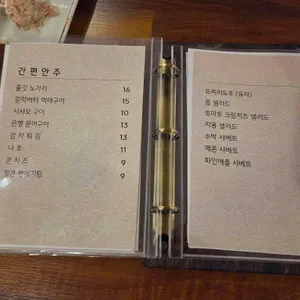 간편안주
노가리 16
먹태구이 15
시샤모 구이 10
은행 문어구이 13
감자튀김 13
나쵸 11
콘치즈 9
9
샐러드
토마토 크림치즈 샐러드
자몽 샐러드
수박 샤베트
메론 샤베트
파인애플 샤베트